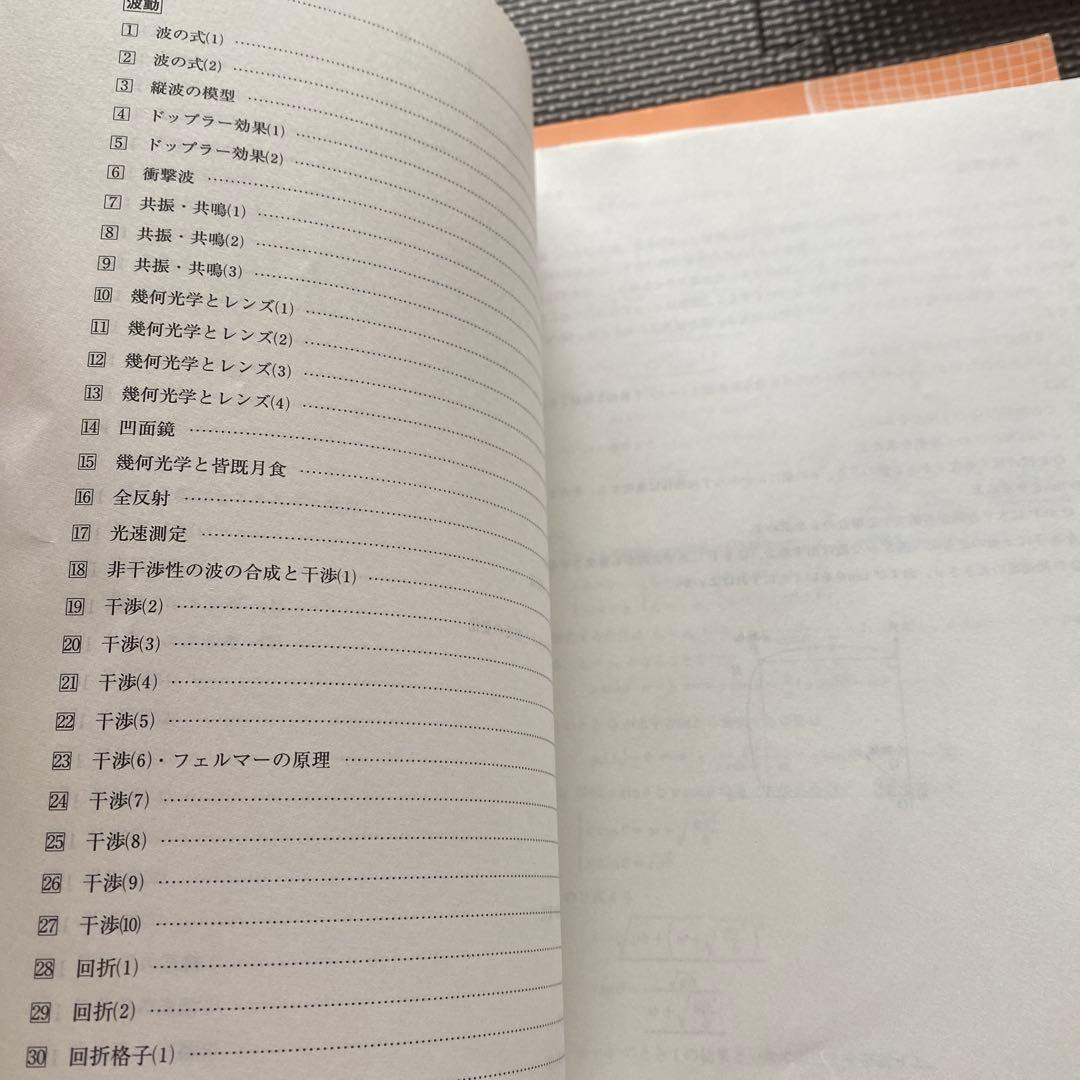 波動
1 波の式(1)
2 波の式(2)
3 縦波の模型
4 ドップラー効果(1)
5 ドップラー効果(2)
6 衝撃波
7 共振・共鳴(1)
8 共振・共鳴(2)
9 共振・共鳴(3)
10 幾何光学とレンズ(1)
11 幾何光学とレンズ(2)
12 幾何光学とレンズ(3)
13 幾何光学とレンズ(4)
14 凹面鏡
15 幾何光学と皆既月食
16 全反射
17 光速測定
18 非干渉性の波の合成と干渉(1)
19 干渉(2)
20 干渉(3)
21 干渉(4)
22 干渉(5)
23 干渉(6)・フェルマーの原理
24 干渉(7)
25 干渉(8)
26 干渉(9)
27 干渉(10)
28 回折(1)
29 回折(2)
30 回折格子(1)